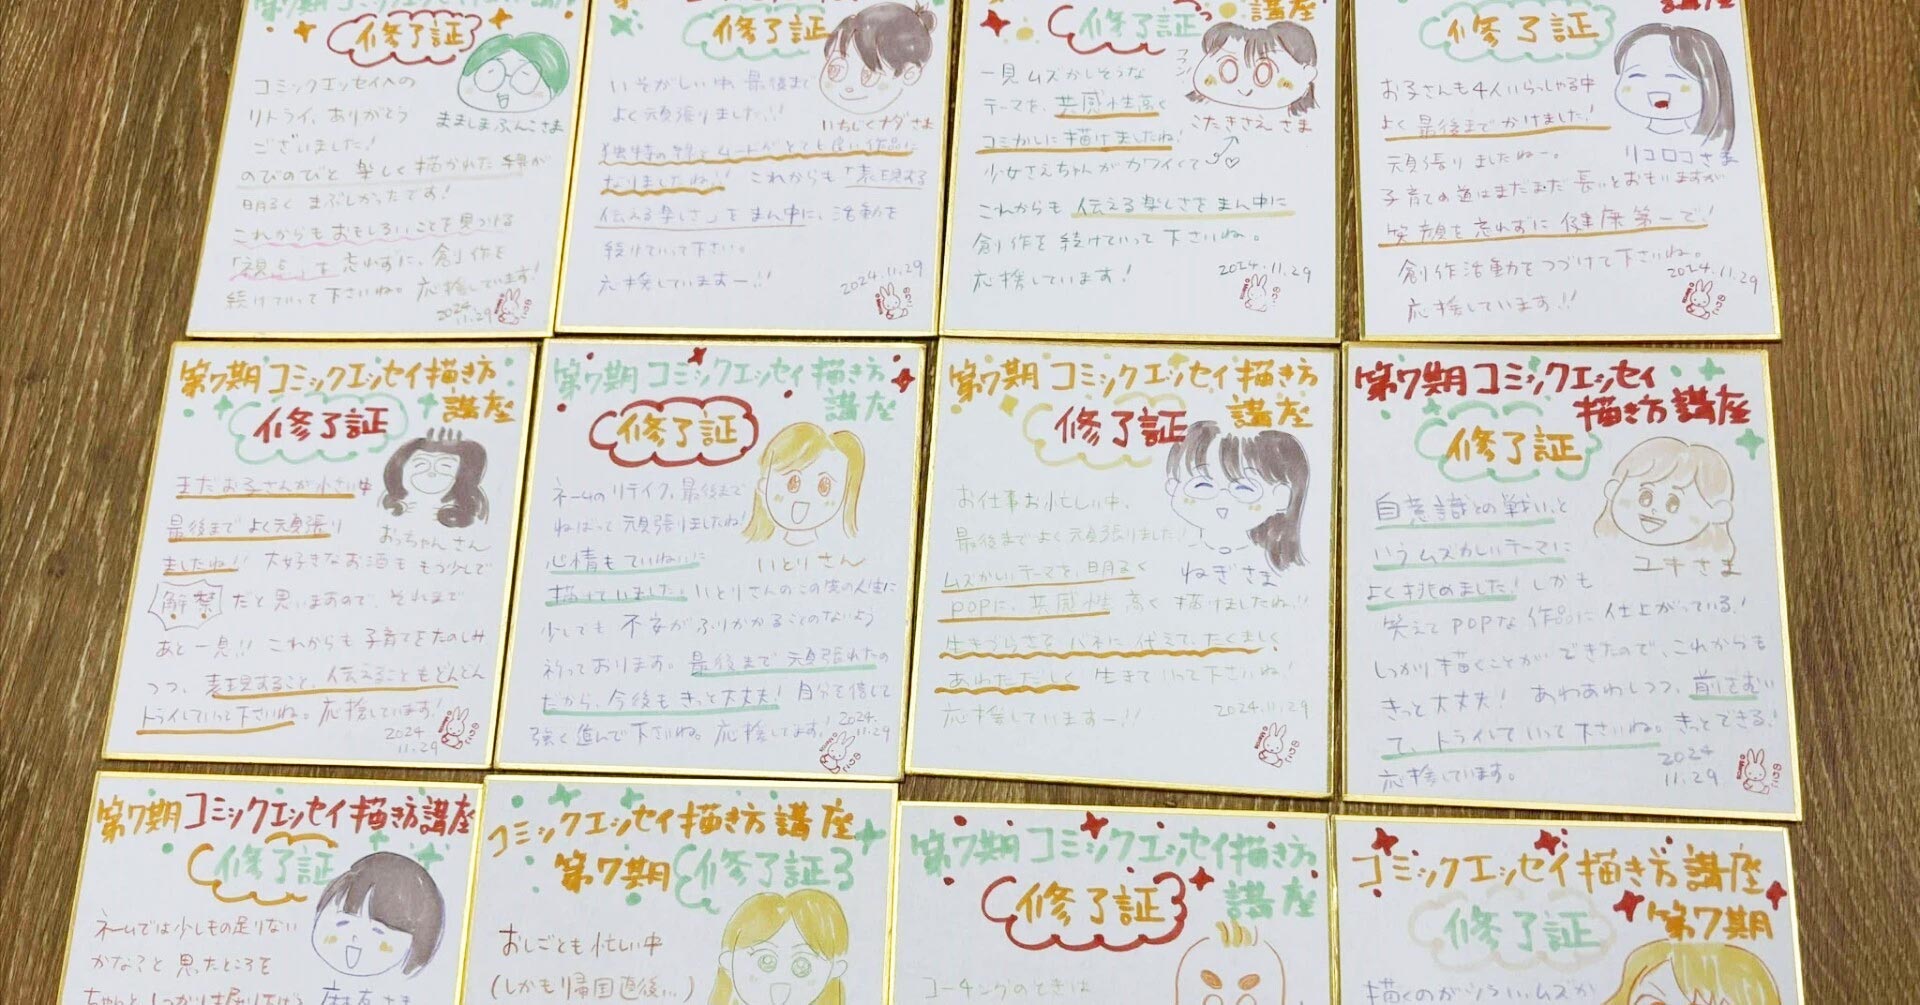 第7期コミックエッセイ描き方講座
修了証
コミックエッセイへの
リトライ、ありがとう
ございました!
ままくまぶんこさま
のびのびと楽しく描かれた線が
明るくまぶしかったです!
これからもおもしろいことを見つける
「視点」を忘れずに、創作を
続けていって下さいね。応援しています!
2024
11.29
修了証
いそがしい中、最後まで
よく頑張りました!!
いちじくナダさま
独特の線でムードがとても良い作品に
なりましたね!! これからも「表現する
伝える楽しさ」をまん中に、活動を
続けていって下さい。
応援していますー!!
2024.11.29
講座
修了証
一見ムズかしそうな
テーマを、共感性高く
コミカルに描けましたね!
こたきさえさま
少女さえちゃんがカワイくて
これからも伝える楽しさをまん中に
創作を続けていって下さいね。
応援しています!
2024.11.29
講座
修了証
お子さんも4人いらっしゃる中
よく最後までかけました!
リコロコさま
頑張りましたねー。
子育ての道はまだまだ長いとおもいますが
笑顔を忘れずに健康第一で!
創作活動をつづけて下さいね。
応援しています!!
2024.11.29
第7期コミックエッセイ描き方
講座
修了証
まだお子さんが小さい中
最後までよく頑張り
おっちゃんさん
ましたね!! 大好きなお酒ももう少しで
解禁だと思いますので、それまで
あと一息!! これからも子育てをたのしみ
つつ、表現すること、伝えることもどんどん
トライしていって下さいね。応援しています!
2024
11.29
第7期コミックエッセイ描き方
講座
修了証
ネームのリテイク、最後まで
ねばって頑張りましたね!
心情もていねいに
いとりさん
描けていました。いとりさんのこの先の人生に
少しでも不安がふりかかることのないよう
祈っております。最後まで頑張れたの
だから、今後もきっと大丈夫! 自分を信じて
強く進んで下さいね。応援してます!
2024.
11.29
第7期コミックエッセイ描き方
講座
修了証
お仕事お忙しい中、
最後までよく頑張りました!
ねぎさま
ムズかしいテーマを、明るく
POPに、共感性高く描けましたね!!
生きづらさをバネに代えて、たくましく
あわただしく生きていって下さいね!
応援していますー!!
2024.11.29
第7期コミックエッセイ
描き方講座
修了証
自意識との戦いと
いうムズかしいテーマに
ユキさま
よく挑めました! しかも
笑えてPOPな作品に仕上がっている!
しっかり描くことができたので、これからも
きっと大丈夫! あわあわしつつ、前をむい
て、トライしていって下さいね。きっとできる!
応援しています。
2024
11.29
第7期コミックエッセイ描き方講座
修了証
ネームでは少しもの足りない
かな?と思ったところを
コミックエッセイ描き方講座
第7期 修了証
おしごとも忙しい中
(しかも帰国直後…)
第7期コミックエッセイ描き方
講座
修了証
コーチングのときは
コミックエッセイ描き方講座
第7期
修了証